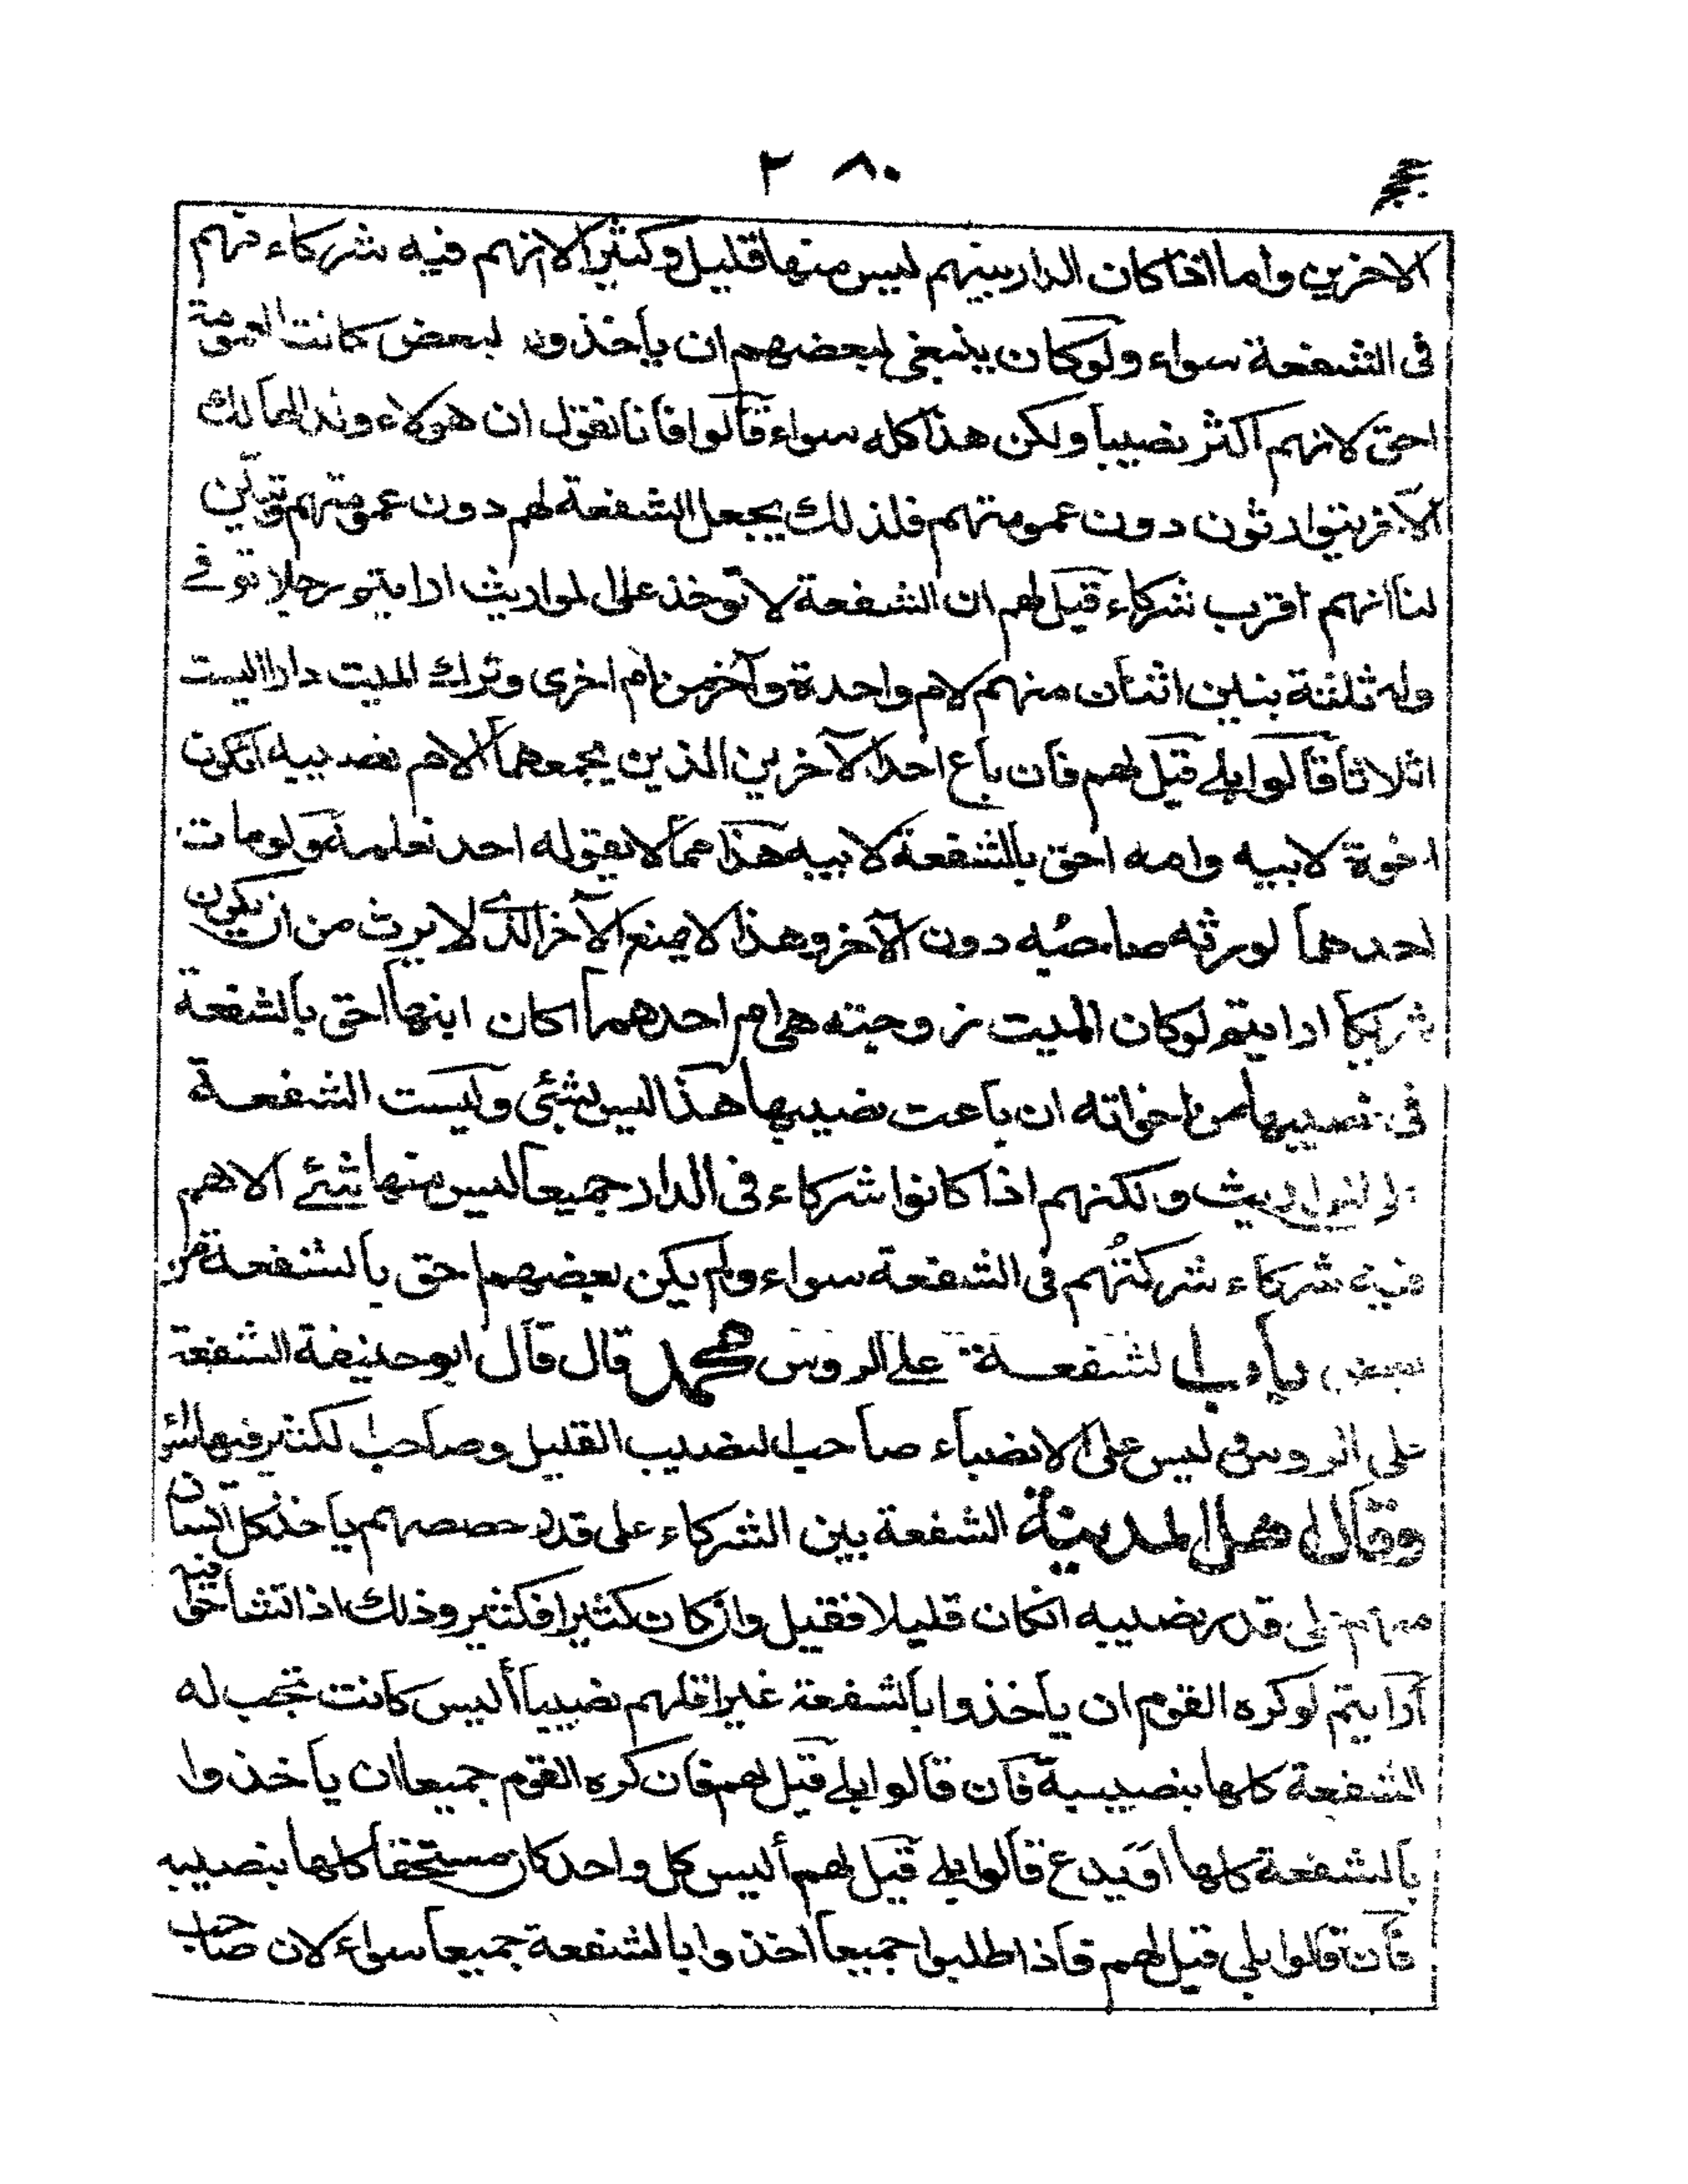 ٢٨٠
الاخرين واما اذا كان الدار بينهم ليس منها قليل وكثير الا نهم فيه شركاء فهم
فى الشفعة سواء ولو كان ينبغي لبعضهم ان يأخذ دون لبعض كانت العمومة
احق لانهم اكثر نصيبا ولكن هذا كله سواء قالوا فانا نقول ان هولاء ولد الهالك
الآخر يتوارثون دون عمومتهم فلذلك يجعل الشفعة لهم دون عمومتهم
لنا انهم اقرب شركاء قيل لهم ان الشفعة لا توخذ على المواريث ارايتم رجلا توفى
وله ثلثة بنين اثنان منهم لام واحدة وآخر من ام اخرى وترك الميت دارا اليست
اثلاثا قالوا بلے قيل لهم فان باع احد الآخرين الذين يجمعهما الام نصيبه ايكون
اخوة لابيه وامه احق بالشفعة لابيه هذا مما لا يقوله احد نعلمه ولو مات
احدهما لورثه صاحبه دون الآخر وهذا لا يمنع الآخر الذى لا يرث من ان يكون
شريكا ارايتم لو كان الميت زوجته هى ام احدهما اكان ابنها احق بالشفعة
فى نصيبها من اخواته ان باعت نصيبها هذا ليس بشئ وليست الشفعة
المواريث ولكنهم اذا كانوا شركاء فى الدار جميعا ليس منها شئے الا هم
فيه شركاء شركتُهم فى الشفعة سواء ولم يكن بعضهم احق بالشفعة من
بعض باب الشفعة على الروس محمد قال قال ابو حنيفة الشفعة
على الروس ليس على الانصباء صاحب النصيب القليل وصاحب الكثير فيها
وقال اهل المدينة الشفعة بين الشركاء على قدر حصصهم ياخذ كل انسان
منهم على قدر نصيبه انكان قليلا فقليل وان كان كثيرا فكثير وذلك اذا تشاحوا فيه
أرايتم لو كره القوم ان ياخذوا بالشفعة غير اقلهم نصيبا أليس كانت تجب له
الشفعة كلها بنصيبه فان قالوا بلے قيل لهم فان كره القوم جميعا ان ياخذوا
بالشفعة كلها او يدع قالوا بلے قيل لهم أليس كل واحد كان مستحقا كلها بنصيبه
فان قالوا بلى قيل لهم فاذا طلبوا جميعا اخذوا بالشفعة جميعا سواء لان صاحب